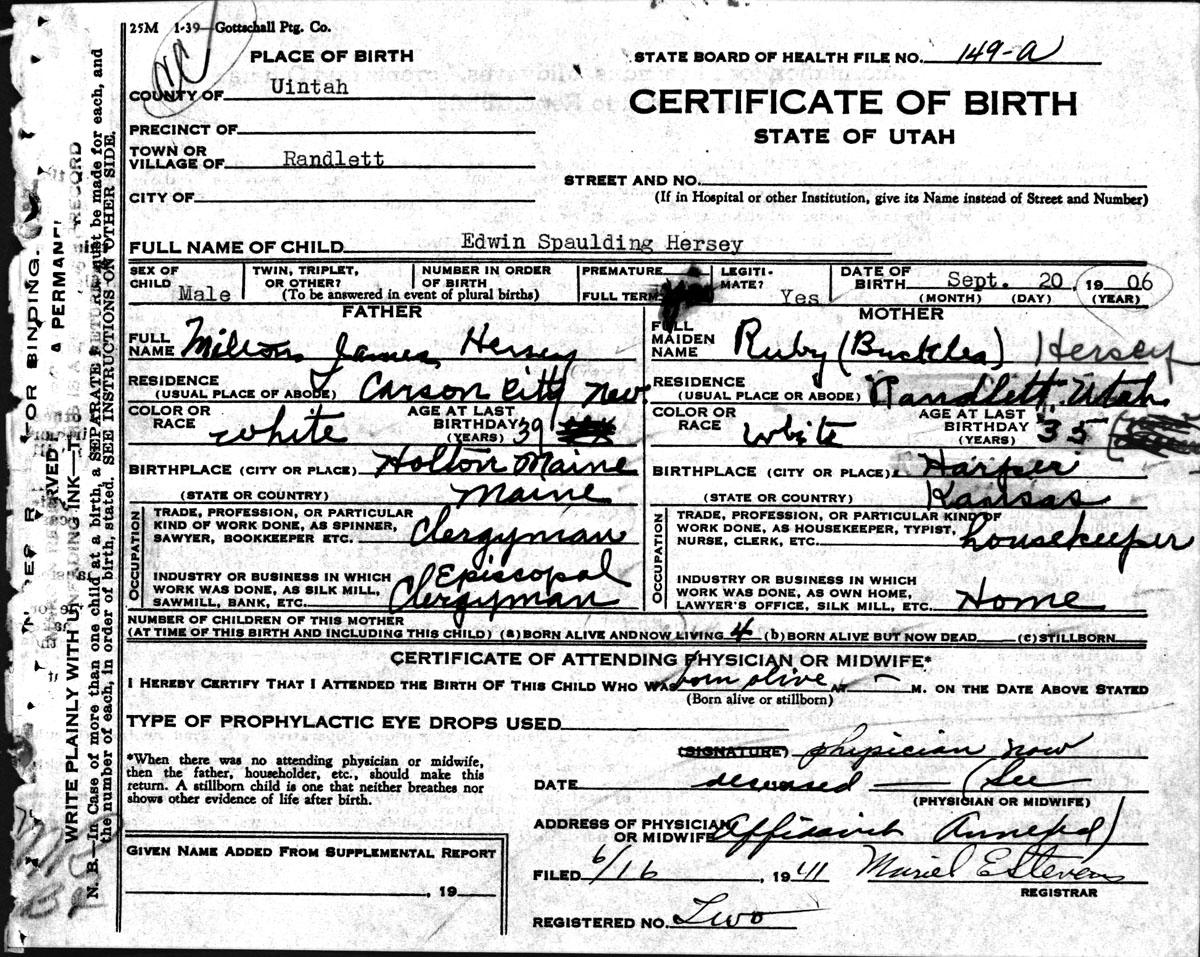 25M 1-39—Gottschall Ptg. Co.
PLACE OF BIRTH
COUNTY OF Uintah
PRECINCT OF
TOWN OR VILLAGE OF Randlett
CITY OF
STATE BOARD OF HEALTH FILE NO. 149-a
CERTIFICATE OF BIRTH
STATE OF UTAH
STREET AND NO.
(If in Hospital or other Institution, give its Name instead of Street and Number)
FULL NAME OF CHILD Edwin Spaulding Hersey
SEX OF CHILD Male
TWIN, TRIPLET, OR OTHER?
NUMBER IN ORDER OF BIRTH
(To be answered in event of plural births)
PREMATURE
FULL TERM
LEGITIMATE? Yes
DATE OF BIRTH Sept. 20, 1906
(MONTH) (DAY) (YEAR)
FATHER
FULL NAME Milton James Hersey
RESIDENCE (USUAL PLACE OF ABODE) Carson City Nev.
COLOR OR RACE white
AGE AT LAST BIRTHDAY (YEARS) 39
BIRTHPLACE (CITY OR PLACE) Holton Maine
(STATE OR COUNTRY) Maine
OCCUPATION
TRADE, PROFESSION, OR PARTICULAR
KIND OF WORK DONE, AS SPINNER,
SAWYER, BOOKKEEPER ETC. Clergyman
INDUSTRY OR BUSINESS IN WHICH
WORK WAS DONE, AS SILK MILL,
SAWMILL, BANK, ETC. Episcopal Clergyman
MOTHER
FULL MAIDEN NAME Ruby (Buckles) Hersey
RESIDENCE (USUAL PLACE OR ABODE) Randlett Utah
COLOR OR RACE white
AGE AT LAST BIRTHDAY (YEARS) 35
BIRTHPLACE (CITY OR PLACE). Harper
(STATE OR COUNTRY) Kansas
OCCUPATION
TRADE, PROFESSION, OR PARTICULAR KIND OF
WORK DONE, AS HOUSEKEEPER, TYPIST,
NURSE, CLERK, ETC. housekeeper
INDUSTRY OR BUSINESS IN WHICH
WORK WAS DONE, AS OWN HOME,
LAWYER'S OFFICE, SILK MILL, ETC. Home
NUMBER OF CHILDREN OF THIS MOTHER
(AT TIME OF THIS BIRTH AND INCLUDING THIS CHILD) (a) BORN ALIVE AND NOW LIVING 4 (b) BORN ALIVE BUT NOW DEAD (c) STILLBORN
CERTIFICATE OF ATTENDING PHYSICIAN OR MIDWIFE*
I HEREBY CERTIFY THAT I ATTENDED THE BIRTH OF THIS CHILD WHO WAS born alive AT — M. ON THE DATE ABOVE STATED
(Born alive or stillborn)
TYPE OF PROPHYLACTIC EYE DROPS USED
*When there was no attending physician or midwife,
then the father, householder, etc., should make this
return. A stillborn child is one that neither breathes nor
shows other evidence of life after birth.
(SIGNATURE) physician now
DATE deseased — (See
(PHYSICIAN OR MIDWIFE)
ADDRESS OF PHYSICIAN OR MIDWIFE Affidavit Annexed)
GIVEN NAME ADDED FROM SUPPLEMENTAL REPORT
, 19
FILED 6/16, 1941 Muriel E Stevens
REGISTRAR
REGISTERED NO. Two
WRITE PLAINLY WITH UNFADING INK
N. B.—In Case of more than one child at a birth, a SEPARATE RETURN must be made for each, and
the number of each, in order of birth, stated. SEE INSTRUCTIONS ON OTHER SIDE.